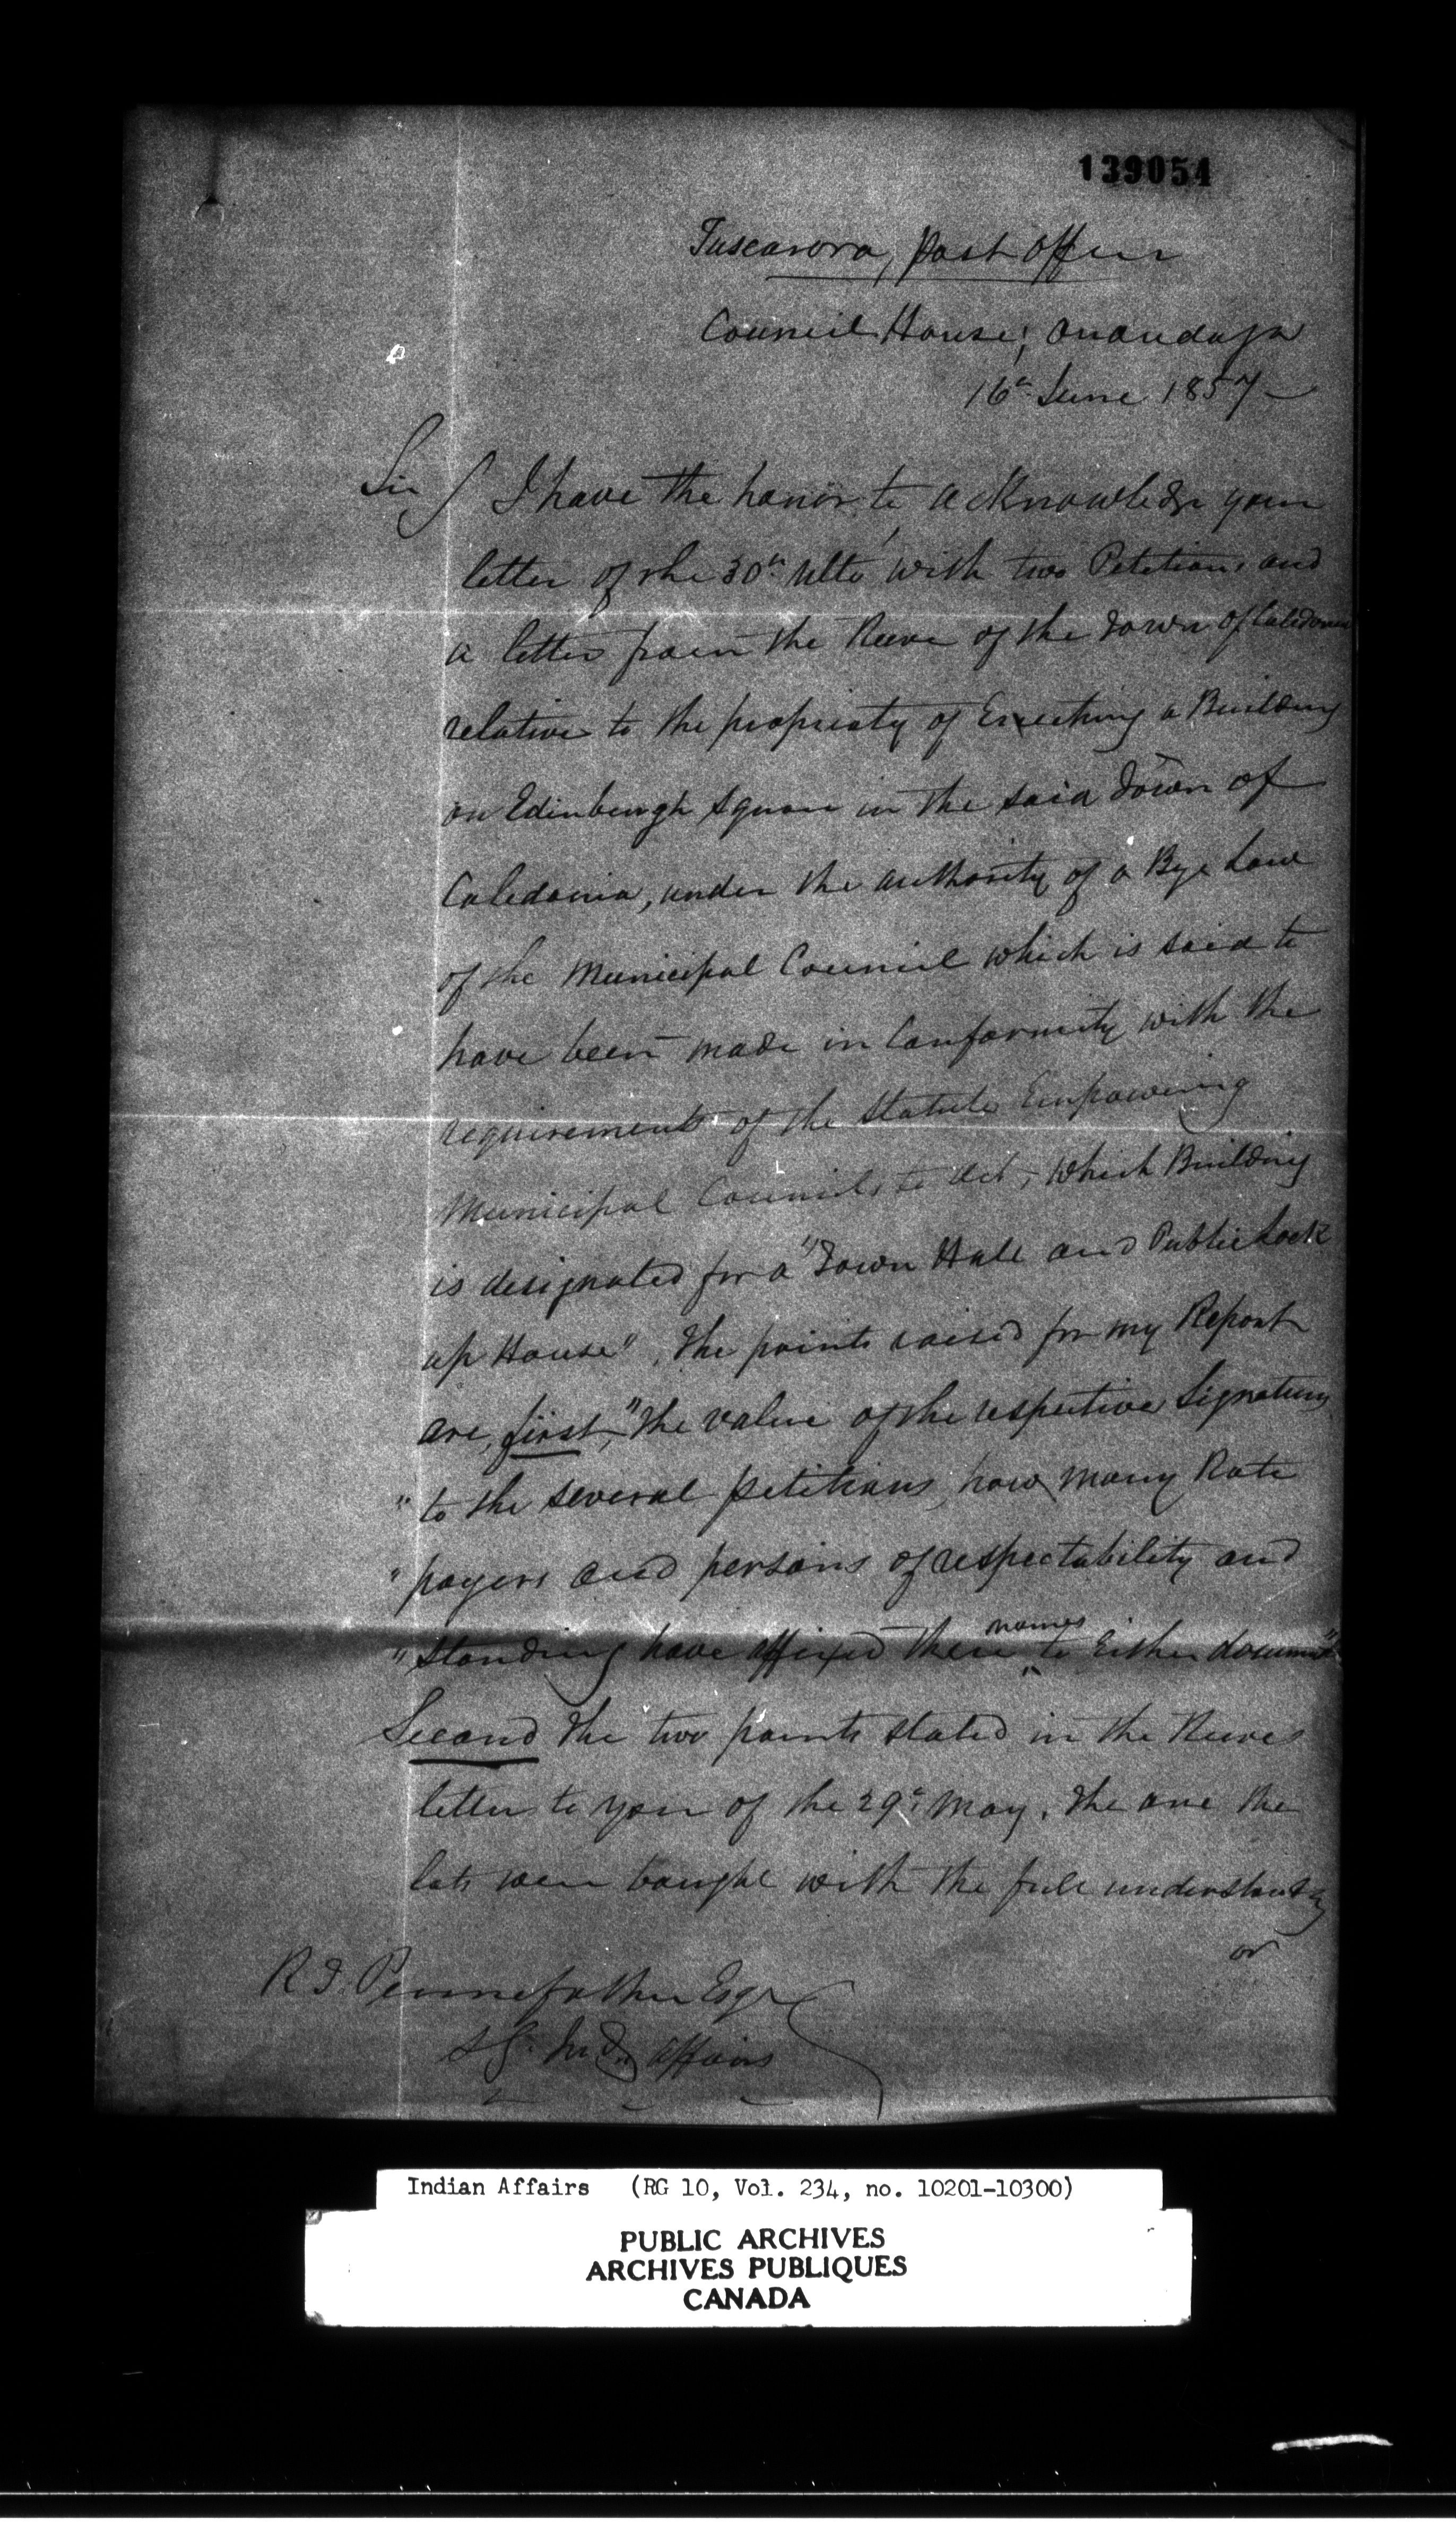 139054
Tuscarora, Post Office
Council House, Onondaga
16th June 1857
Sir I have the honor to acknowledge your
letter of the 30th Ulto with two Petitions and
a letter from the Reeve of the Town of Caledonia
relative to the propriety of Erecting a Building
on Edinburgh Square in the said Town of
Caledonia, under the authority of a Bye Law
of the Municipal Council which is said to
have been made in Conformity with the
requirements of the Statute Empowering
Municipal Councils to Act, which Building
is designated for a "Town Hall and Public Lock
up House". The points raised for my Report
are, first, "the value of the respective Signatures
" to the several petitions, how many Rate
" payers and persons of respectability and
" Standing have affixed their names to Either document"
Second the two points stated in the Reeves
letter to you of the 29th May. The one the
lots were bought with the full understanding
or
R T. Pennefather Esqr
S G. Indn Affairs
Indian Affairs (RG 10, Vol. 234, no. 10201-10300)
PUBLIC ARCHIVES
ARCHIVES PUBLIQUES
CANADA